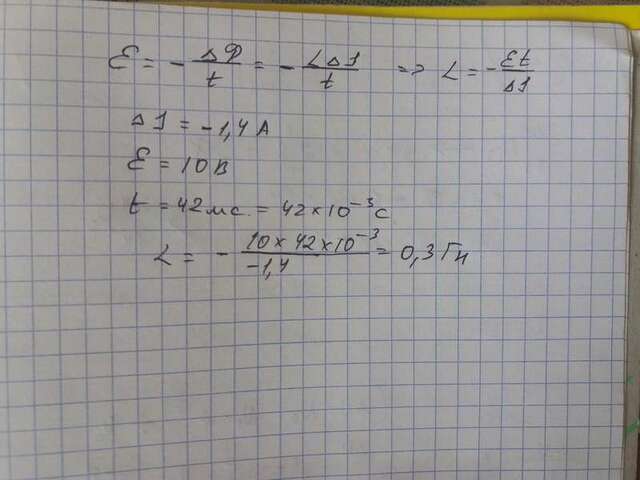 Ɛ = - ΔΦ/t = - LΔI/t => L = - Ɛt/ΔI
ΔI = -1,4 А
Ɛ = 10 В
t = 42 мс. = 42×10⁻³ с
L = - 10×42×10⁻³/-1,4 = 0,3 Гн